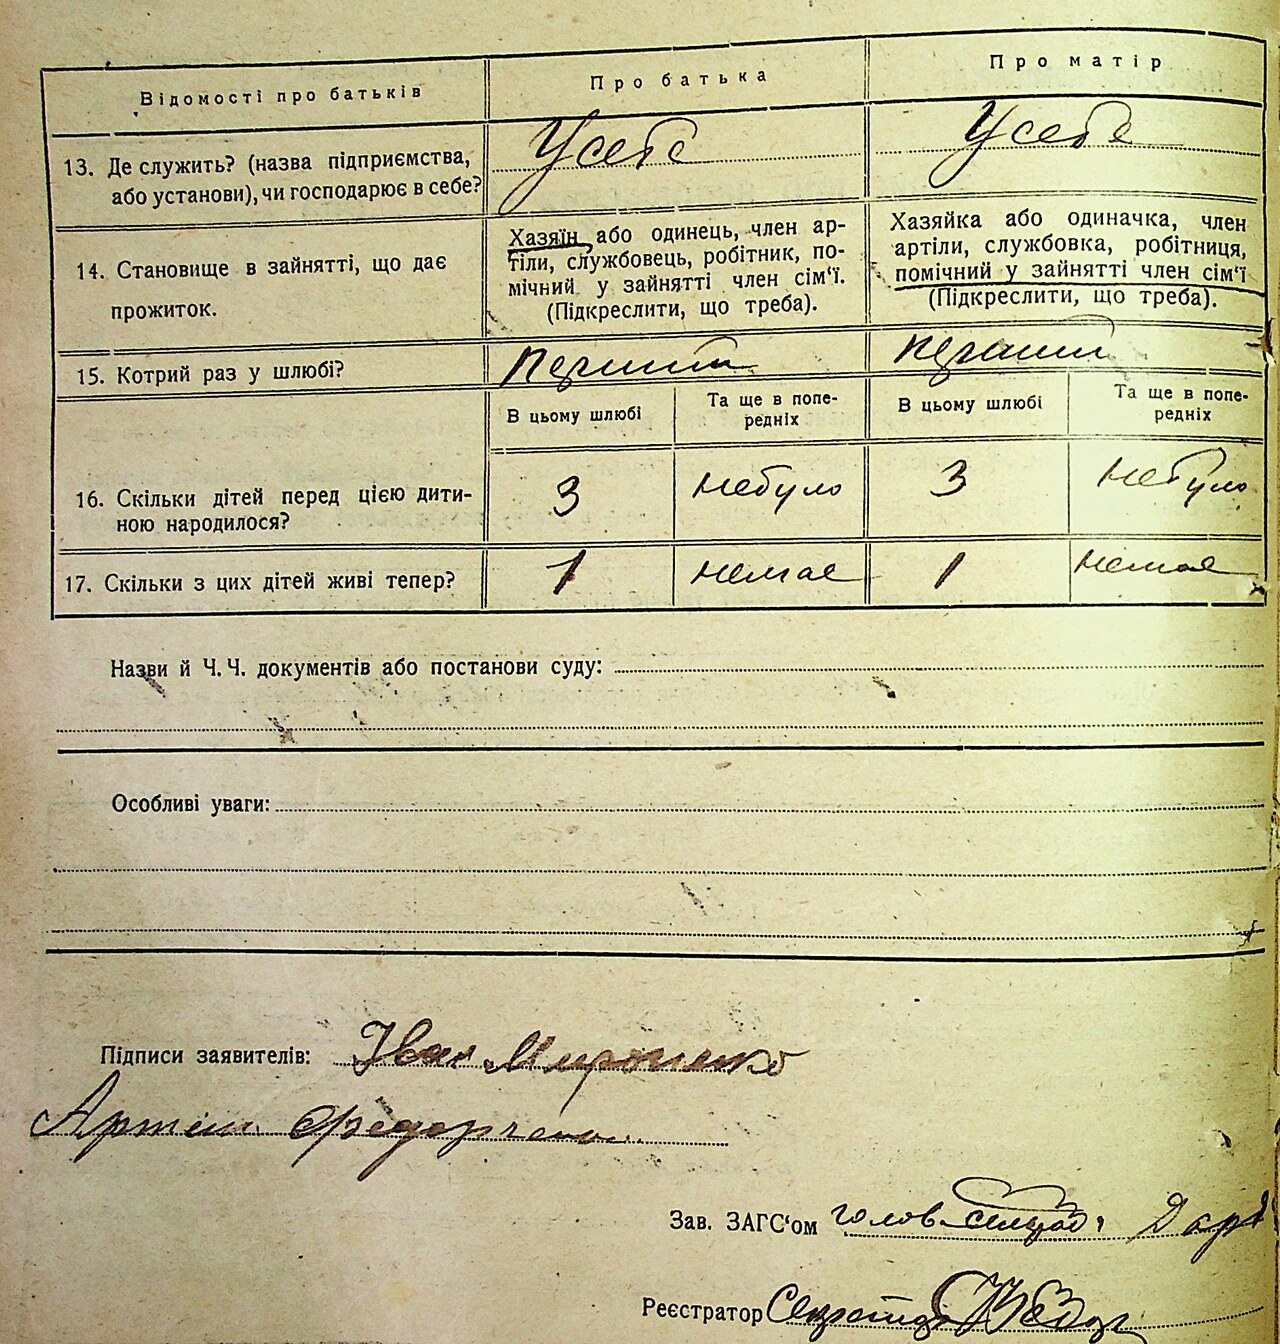 Відомості про батьків
Про батька
Про матір
13. Де служить? (назва підприємства, або установи), чи господарює в себе?
У себе
У себе
14. Становище в зайнятті, що дає прожиток.
Хазяїн або одинець, член ар-
тіли, службовець, робітник, по-
мічний у зайнятті член сім‘ї.
(Підкреслити, що треба).
Хазяйка або одиначка, член
артіли, службовка, робітниця,
помічний у зайнятті член сім‘ї
(Підкреслити, що треба).
15. Котрий раз у шлюбі?
Перший
Перший
В цьому шлюбі
Та ще в попе-
редніх
В цьому шлюбі
Та ще в попе-
редніх
16. Скільки дітей перед цією дити-
ною народилося?
3
небуло
3
небуло
17. Скільки з цих дітей живі тепер?
1
немає
1
немає
Назви й Ч. Ч. документів або постанови суду:
Особливі уваги:
Підписи заявителів: Іван Мироненко
Артем Федорченко
Зав. ЗАГС‘ом голов. сільради
Реєстратор Секретар